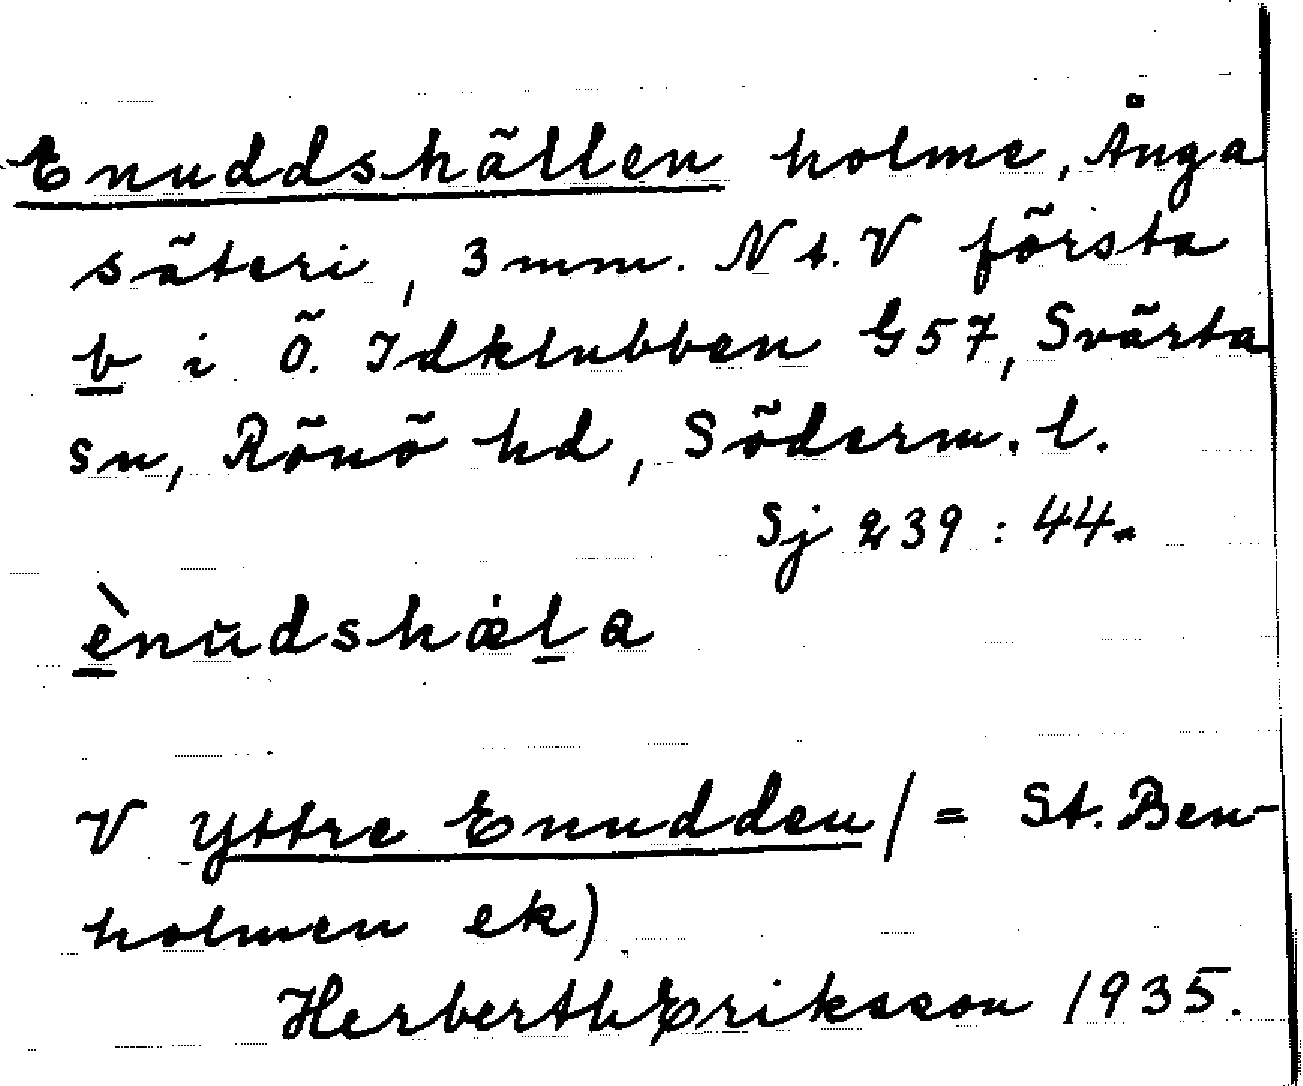 Enuddshällen holme, Ånga
säteri, 3 mm. N t. V första
b i Ö. Idklubben G57, Svärta
sn, Rönö hd, Söderm. l.
Sj 239 : 44.
ènŭdshæ̀la
V Yttre Enudden (= St. Ben-
holmen ek)
Herberth Eriksson 1935.